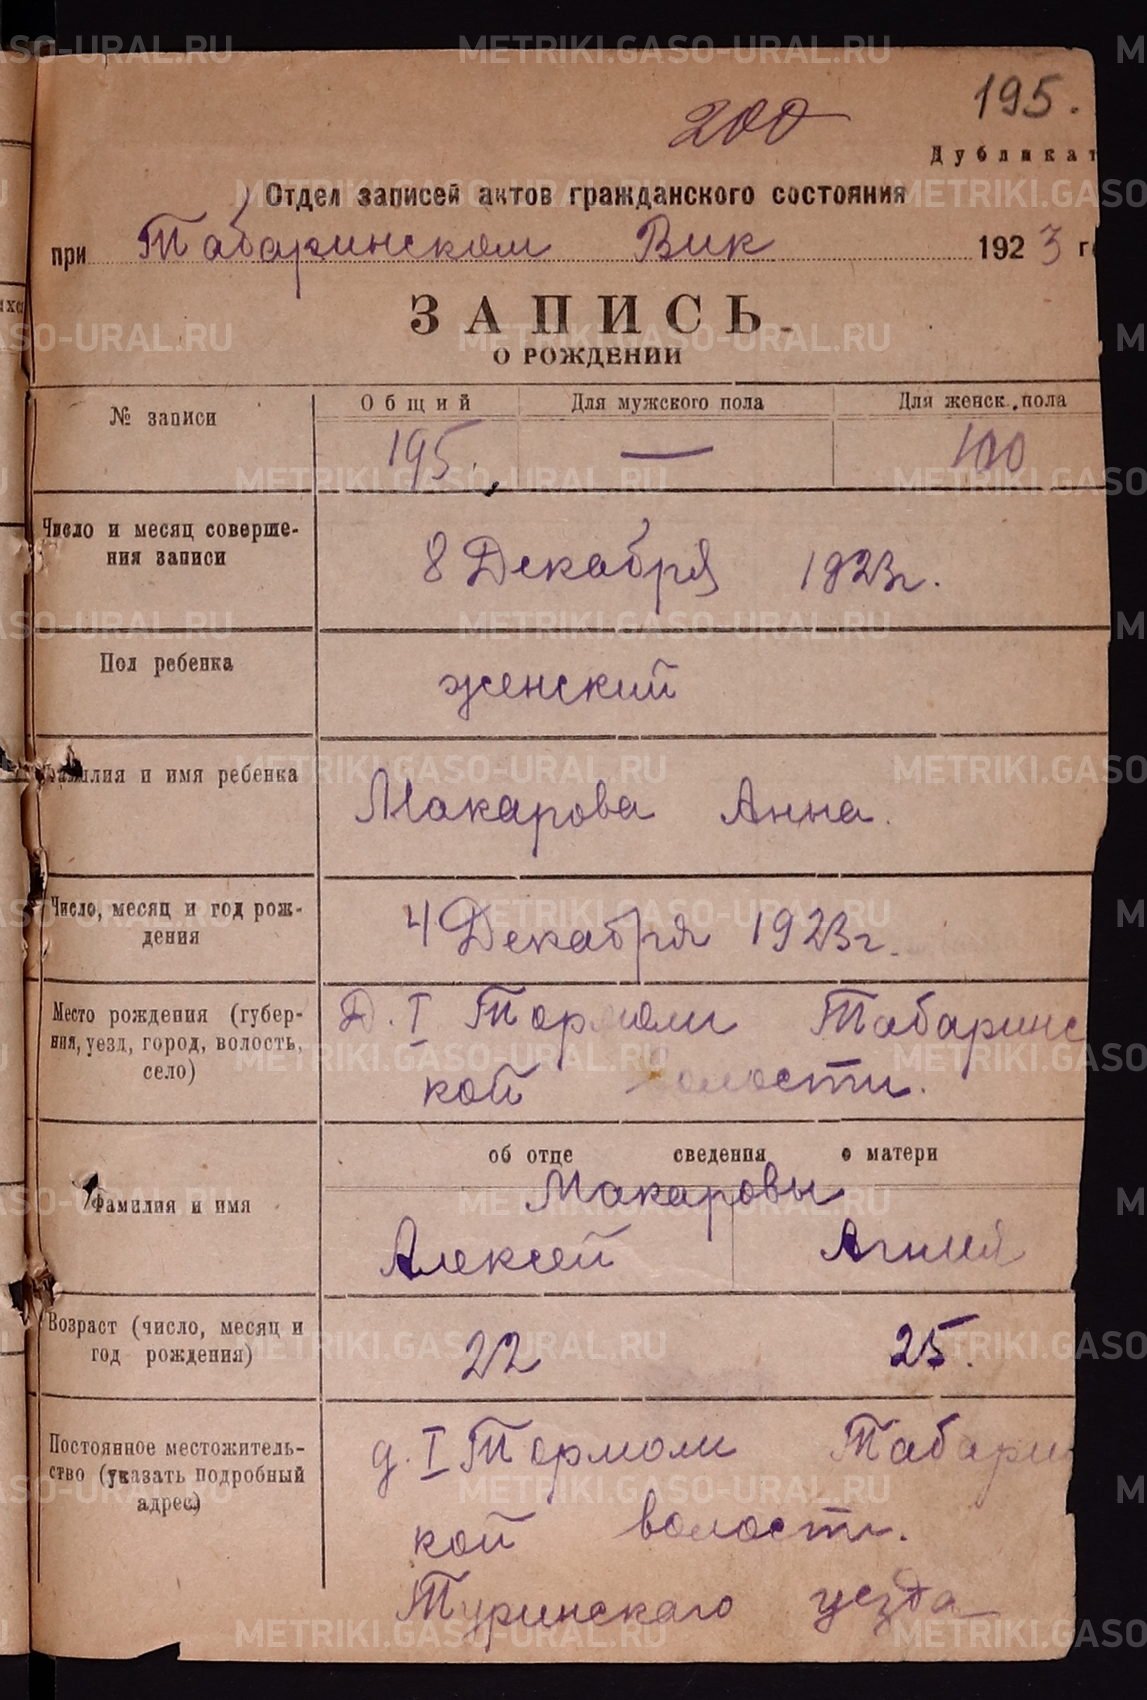 195.
200
Дубликат
Отдел записей актов гражданского состояния
при Табаринском Вик 1923 г
ЗАПИСЬ
О РОЖДЕНИИ
№ записи
Общий Для мужского пола Для женск. пола
195. — 100
Число и месяц соверше-
ния записи
8 Декабря 1923г.
Пол ребенка
женский
Фамилия и имя ребенка
Макарова Анна.
Число, месяц и год рож-
дения
4 Декабря 1923г.
Место рождения (губер-
ния, уезд, город, волость,
село)
Д. I Тормоли Табаринс
кой волости.
об отце сведения о матери
Фамилия и имя
Макаровы
Алексей Агния
Возраст (число, месяц и
год рождения)
22 25.
Постоянное местожитель-
ство (указать подробный
адрес)
д. I Тормоли Табарин
кой волости.
Туринскаго уезда
METRIKI.GASO-URAL.RU